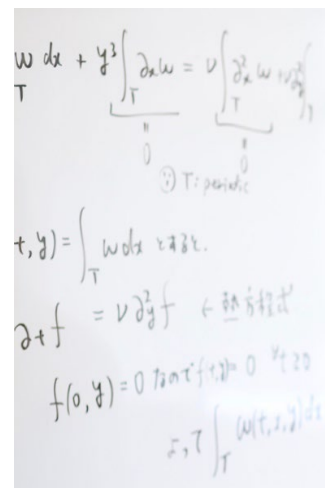 w dx + y³ ∫_T ∂ₓw = ν ∫_T ∂ₓ²w + ν∂
T
" "
0 0
∵ T: periodic
t, y) = ∫_T w dx とすると、
∂t f = ν∂_y² f ← 熱方程式
f(0, y) = 0 なので f(t,y) = 0 ∀t≥0
よって ∫_T w(t,x,y)dx